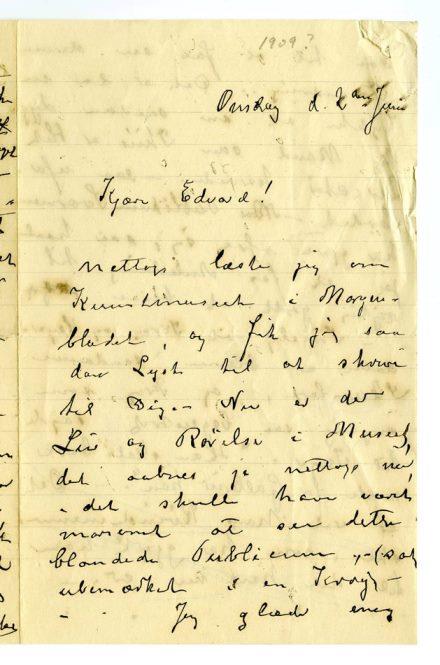 1909?
Onsdag d. 2den Juni
Kjære Edvard!
Nettop læste jeg om
Kunstmuseet i Morgen-
bladet, og fik jeg saa
dan Lyst til at skrive
til Dig – Nu er der
Liv og Rørelse i Museet,
det aabnes jo nettop nu
– det skulle have været
morsomt at se dette
blandede Publicum, – (sat
ubemærket i en Krog) –
– Jeg glæder mig